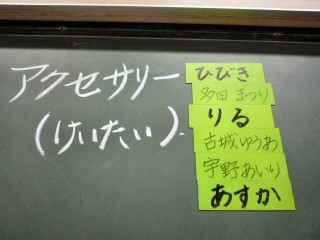 アクセサリー
(けいたい).
ひびき
多田 まつり
りる
古城ゆうあ
宇野あいり
あすか